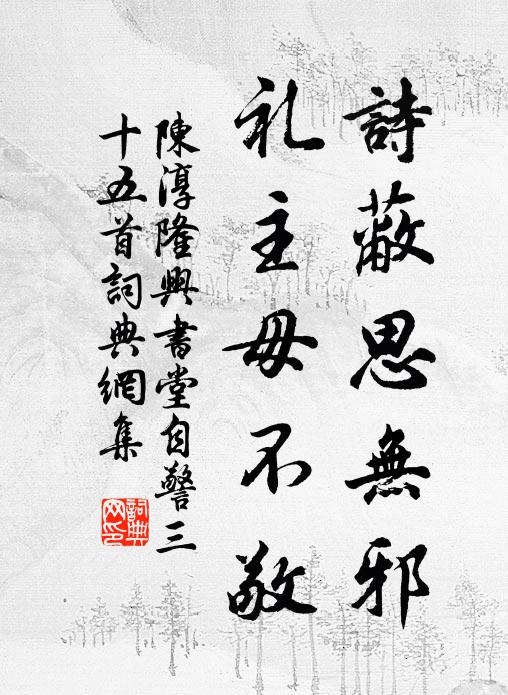 詩蔽思無邪
礼主毋不敬
陳淳隆興書堂自警三
十五首詞典網集
詞典
网印